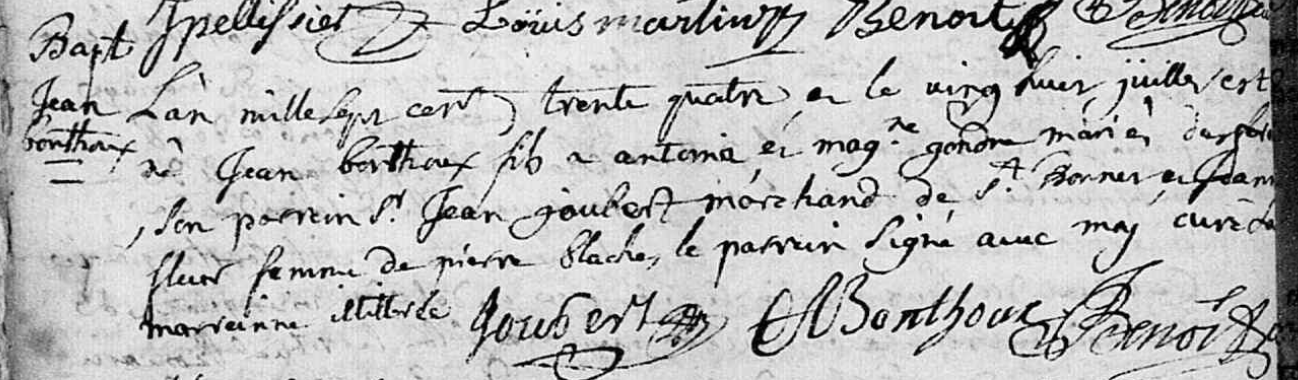 Jpellissier Loüis martin Benoit Benoit
Bapt
Jean
bonthoux
Lan mille sept cent trente quatre et le vingt huit juillet est
né Jean bonthoux fils a antoine et mag.ne gondre mariés
son parrein Sr Jean joubert marchand de St Bonnet et Jeanne
femme de pierre blache, le parrein signé avec moy curé la
marreinne illitterée Joubert ABonthoux Benoit